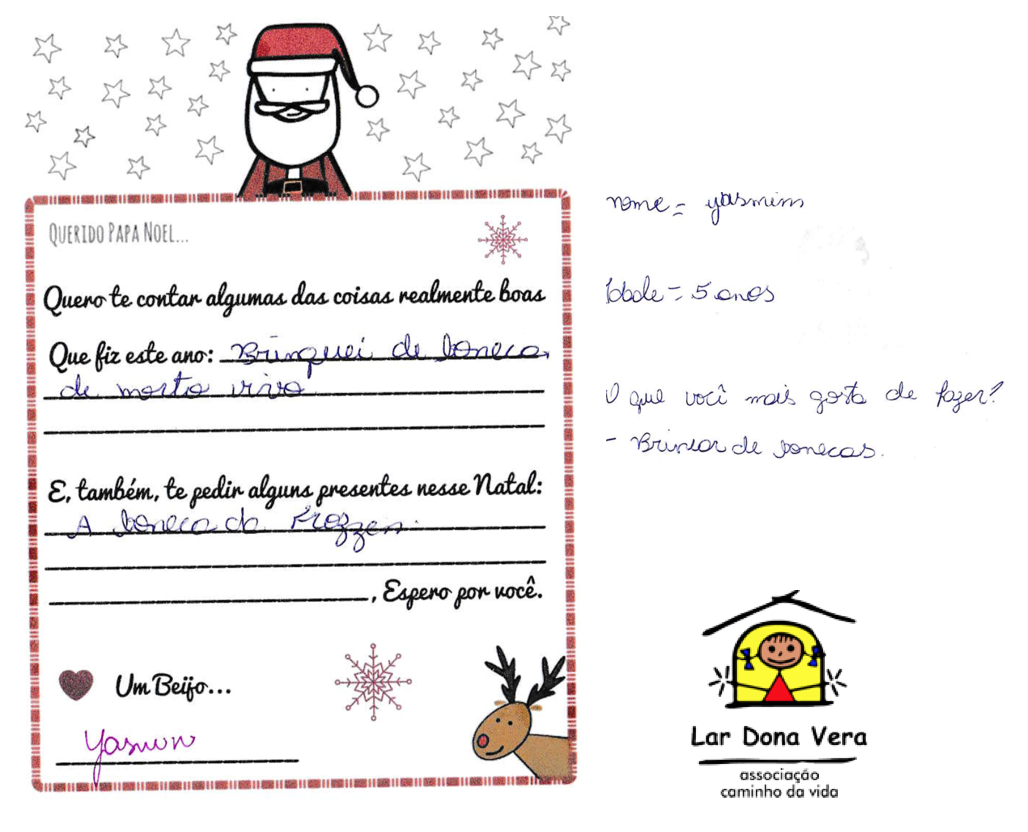 QUERIDO PAPA NOEL...
Quero te contar algumas das coisas realmente boas
Que fiz este ano: Brinquei de boneca,
de morto vivo
E, também, te pedir alguns presentes nesse Natal:
A boneca da Frozzen.
, Espero por você.
Um Beijo...
Yasmin
nome = yasmim
Idade = 5 anos
O que você mais gosta de fazer?
- Brincar de bonecas.
Lar Dona Vera
associação
caminho da vida